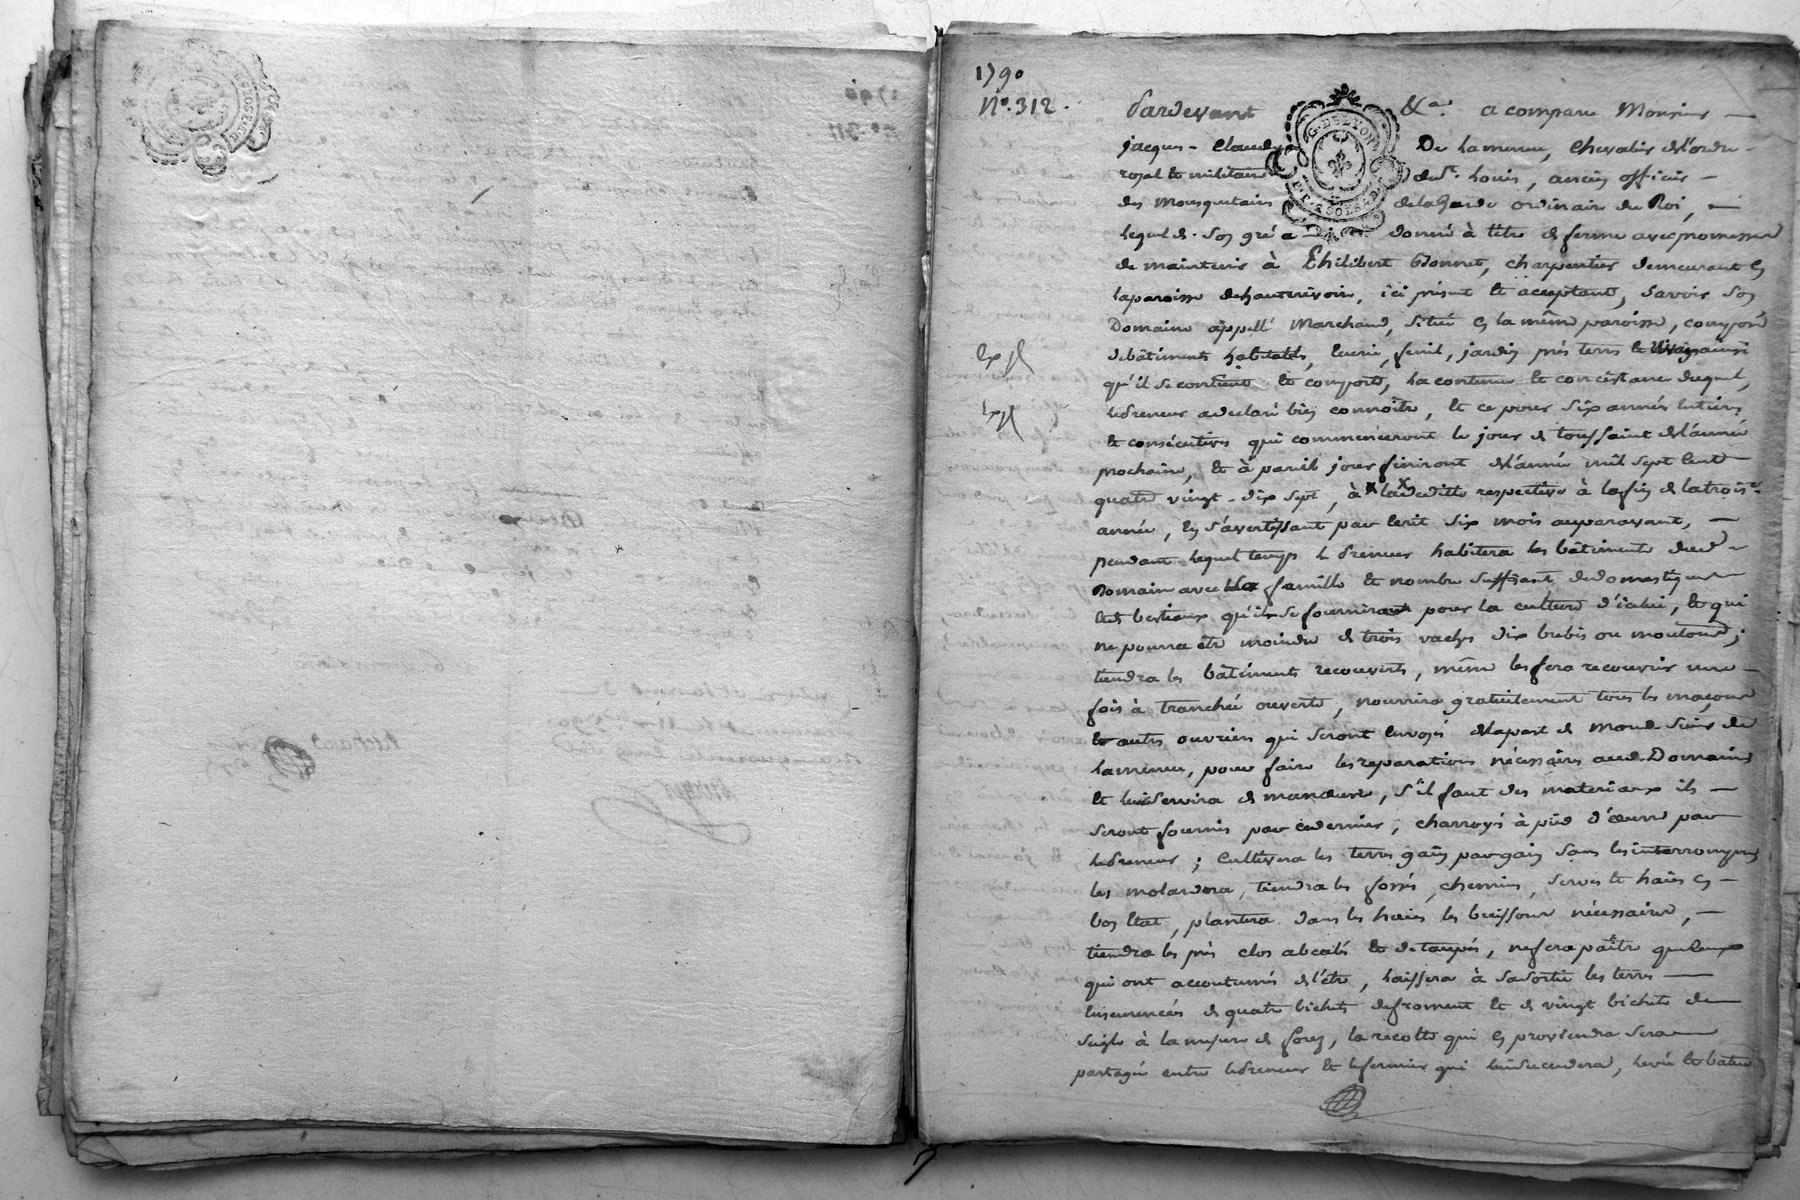 1790
N°. 312.
Pardevant &a. a comparu Monsieur
jacques-Claude De lamenue, chevalier de l'ordre
royal et militaire de St. Louis, ancien officier
des Mousquetaires de la Garde ordinaire du Roi,
lequel de son gré a donné à titre de ferme avec promesse
de maintenir à Philibert Bonnet, charpentier demeurant en
la paroisse de hauterivoire, ici présent et acceptant, savoir son
Domaine appellé Marchand, situé en la même paroisse, composé
de bâtiments habitables, écurie, fenil, jardin prés terres ainsi
qu'il se contient et comporte, la contenue et concistance duquel,
le preneur a déclaré bien connoître, et ce pour six années entières
et consécutives qui commenceront le jour de toussaint de l'année
prochaine, et à pareil jour finiront de l'année mil sept cent
quatre vingt-dix sept, à la deditte respective à la fin de la trois.e
année, en s'avertissant par écrit six mois auparavant,
pendant lequel temps le preneur habitera les bâtiments dud.
Domaine avec sa famille et nombre suffisant de domestiques
et bestiaux qu'il se fournira pour la culture d'icelui, et qui
ne pourra être moindre de trois vaches dix brebis ou moutons;
tiendra les bâtiments recouverts, même les fera recouvrir une
fois à tranchée ouverte, nourrira gratuitement tous les maçons
et autres ouvriers qui seront envoyés de la part de mond. Sieur de
lamenue, pour faire les reparations nécessaires aud. Domaine
et lui servira de manœuvre, s'il faut des materiaux ils
seront fournis par ce dernier, charroyés à pied d'œuvre par
le preneur; cultivera les terres gain par gain sans les interrompre
les molardera, tiendra les fossés, chemins, serves et haies en
bon état, plantera dans les haies les buissons nécessaires,
tiendra les prés clos abealés et detaupés, ne fera paître que ceux
qui ont accoutumés de l'être, laissera à sa sortie les terres
ensemencées de quatre bichets de froment et de vingt bichets de
seigle à la mesure de forez, la récolte qui en proviendra sera
partagée entre le preneur et le fermier qui lui succedera, levée et battue